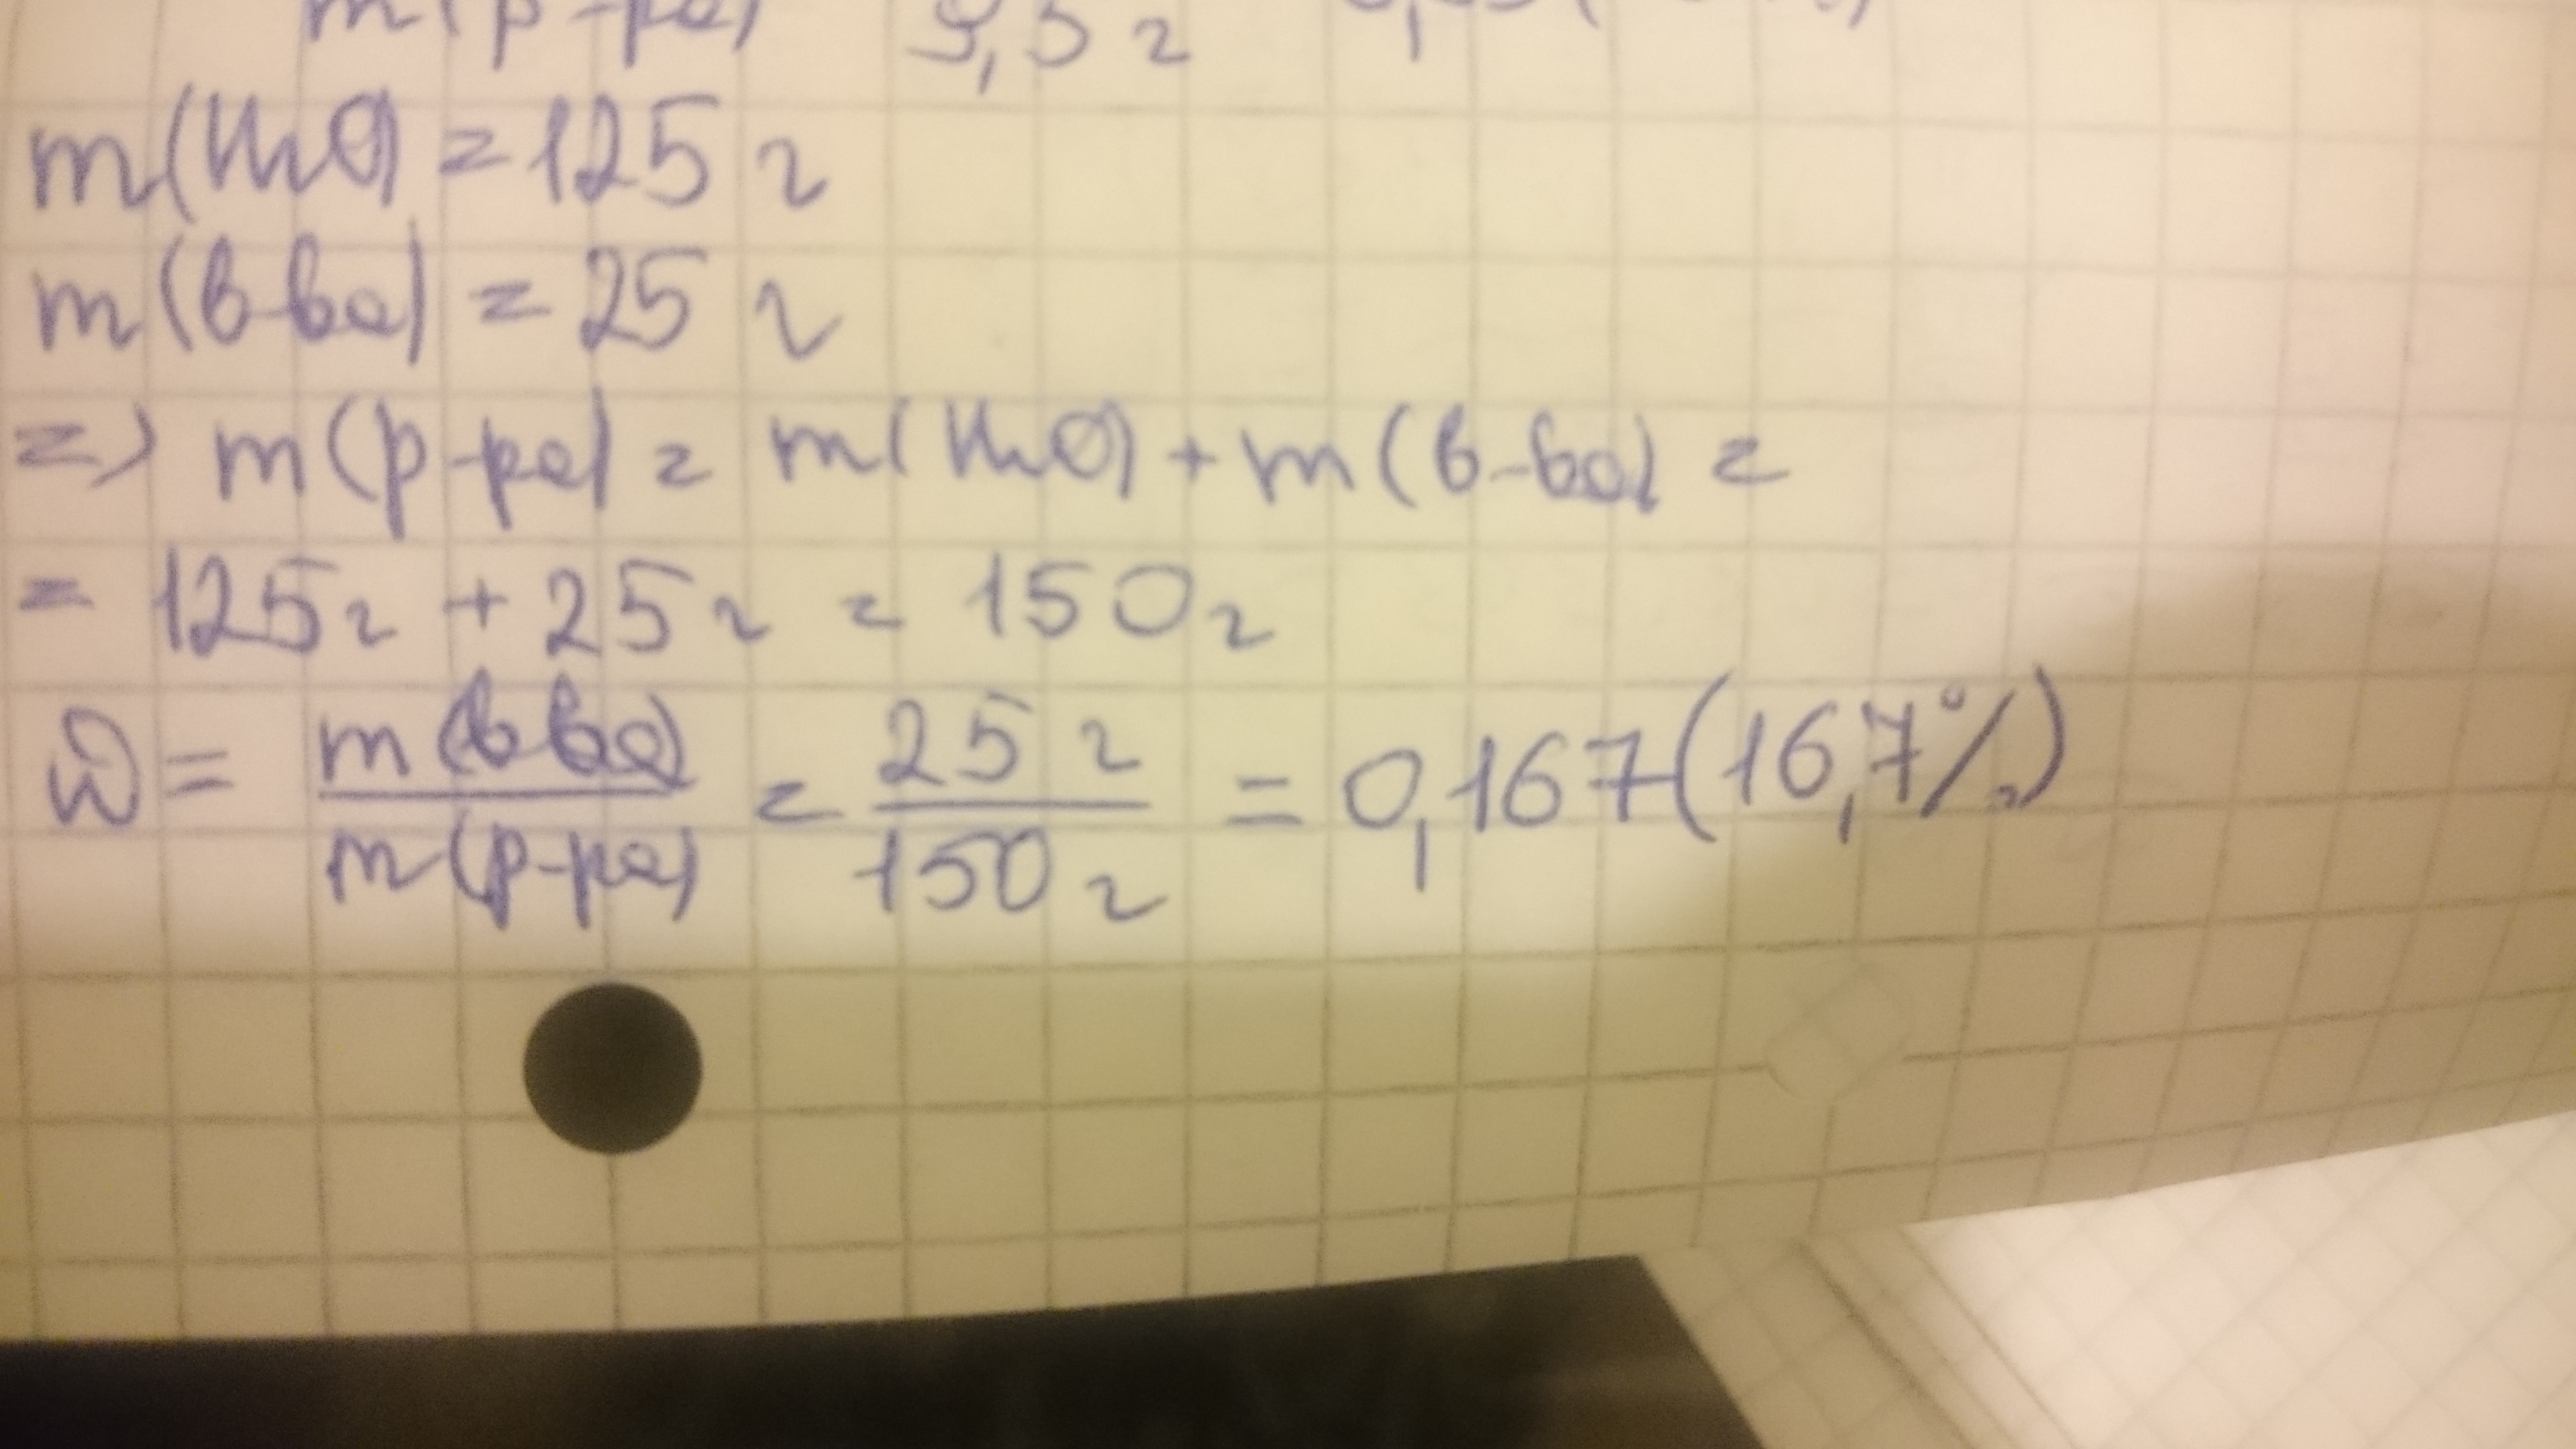 m(р-ра) 9,5 г
m(H₂O) = 125 г
m(в-ва) = 25 г
=> m(р-ра) = m(H₂O) + m(в-ва) =
= 125 г + 25 г = 150 г
ω = m(в-ва) / m(р-ра) = 25 г / 150 г = 0,167 (16,7%)